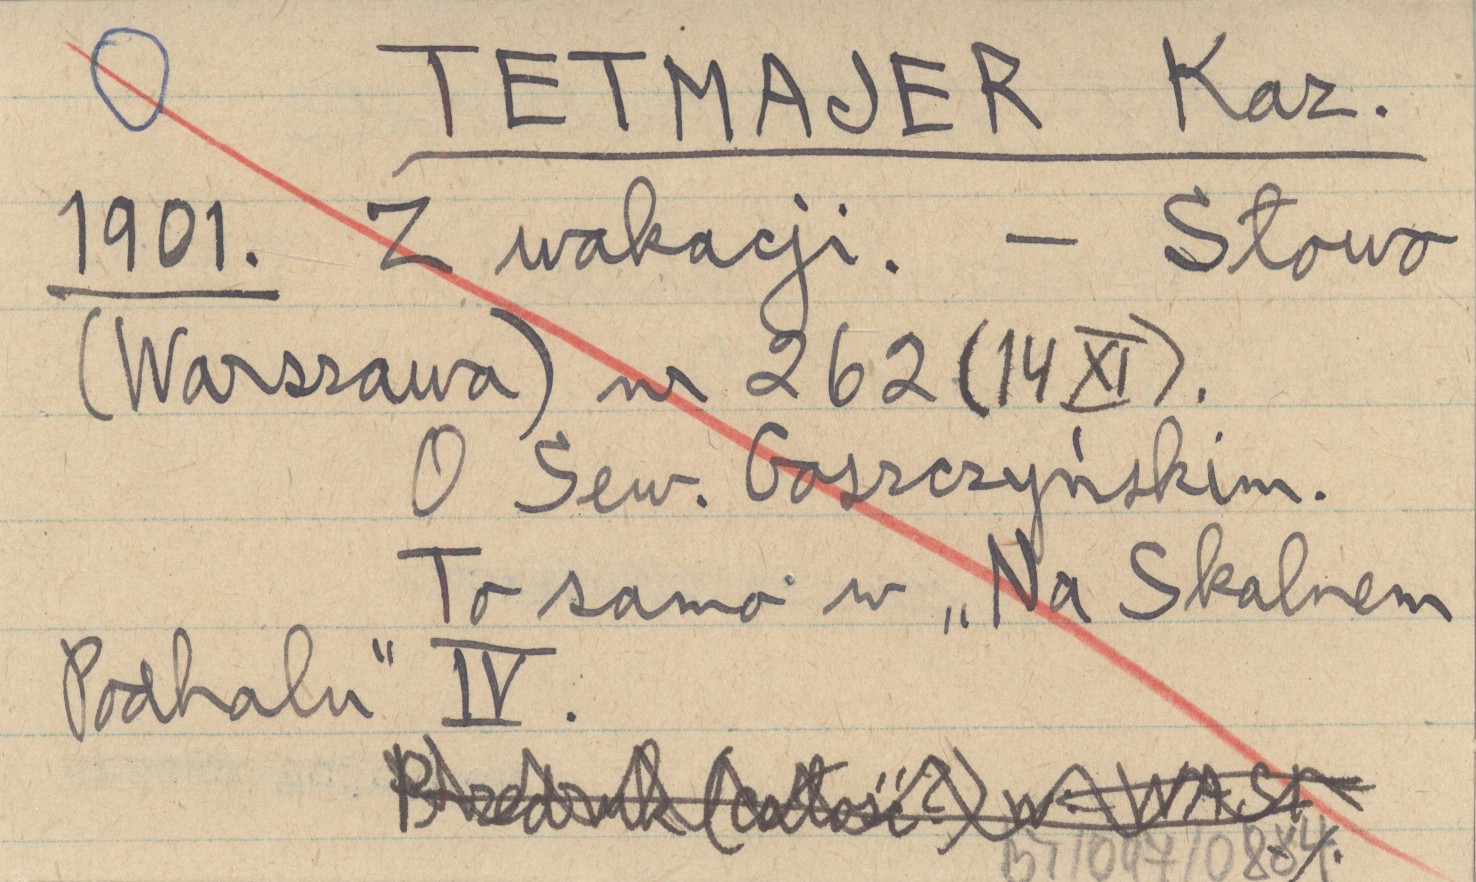 TETMAJER Kaz.
1901. Z wakacji. — Słowo
(Warszawa) nr 262 (14 XI).
O Sew. Goszczyńskim.
To samo w „Na Skalnem
Podhalu" IV.
Przedruk (całość?) w